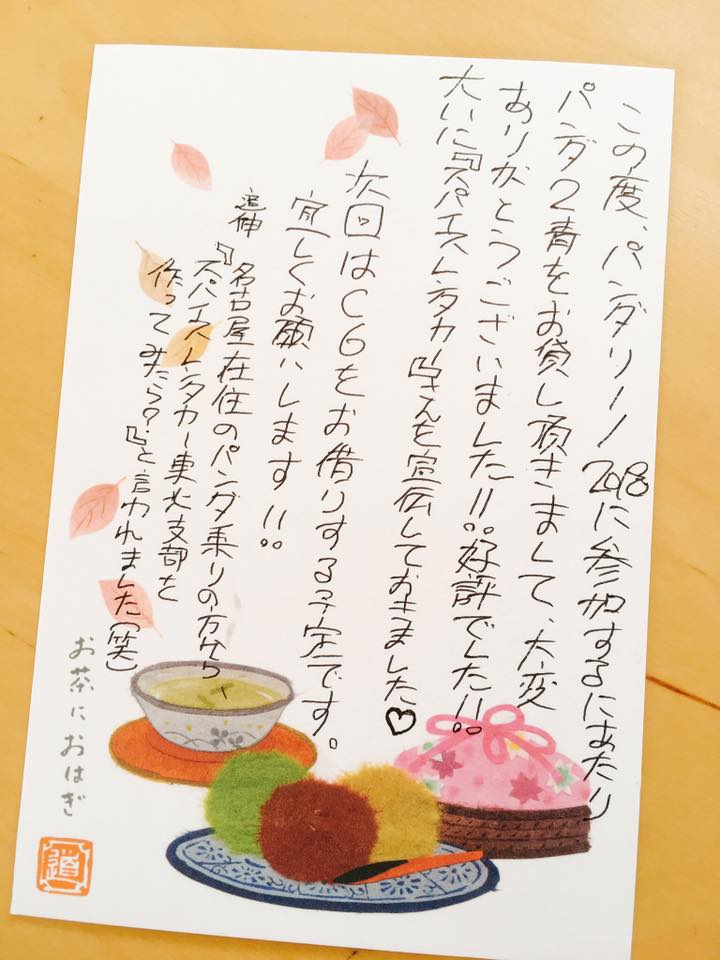 この度、パンダリーノ2018に参加するにあたり
パンダ2青をお貸し頂きまして、大変
ありがとうございました!!好評でした!!
大いに『スパイスレンタカー』さんを宣伝しておきました♡
次回はC6をお借りする予定です。
宜しくお願いします!!
追伸
『名古屋在住のパンダ乗りの方から
スパイスレンタカー東北支部を
作ってみたら?』と言われました(笑)
お茶におはぎ
道